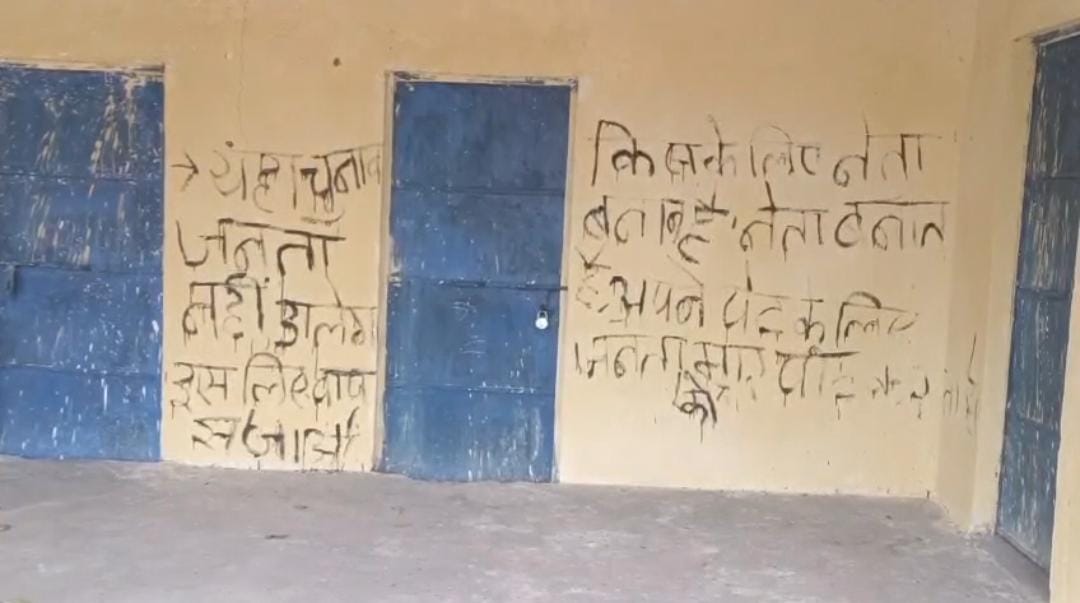 → यहा चुनाव
जनता
नहीं डालेगा
इस लिए वाप
स जाओ
किसके लिए नेता
बनाना है, नेता बनाते
है अपने पेट के लिए
जनता मार पीट
को